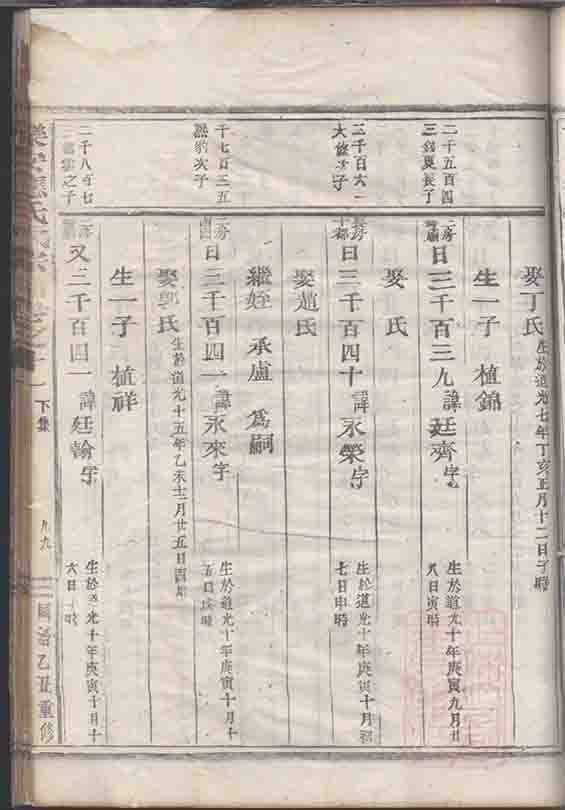 娶丁氏 生於道光七年丁亥五月十二日子時
生一子 植錦
二千五百四
日三千百三九 諱廷齊 字
生於道光十年庚寅九月廿
八日寅時
娶 氏
三千百六一
日三千百四十 諱永榮 字
生於道光十年庚寅十月初
七日申時
娶趙氏
繼姪 承盧 爲嗣
千七百三五
豹次子
日三千百四一 諱永來 字
生於道光十年庚寅十月十
五日 時
娶郭氏 生於道光十五年乙未十二月廿五日酉時
生一子 植祥
二千八百七
之子
又三千百四一 諱廷翰 字
生於道光十年庚寅十月十
六日 時
氏
下集
九九
乙丑重修